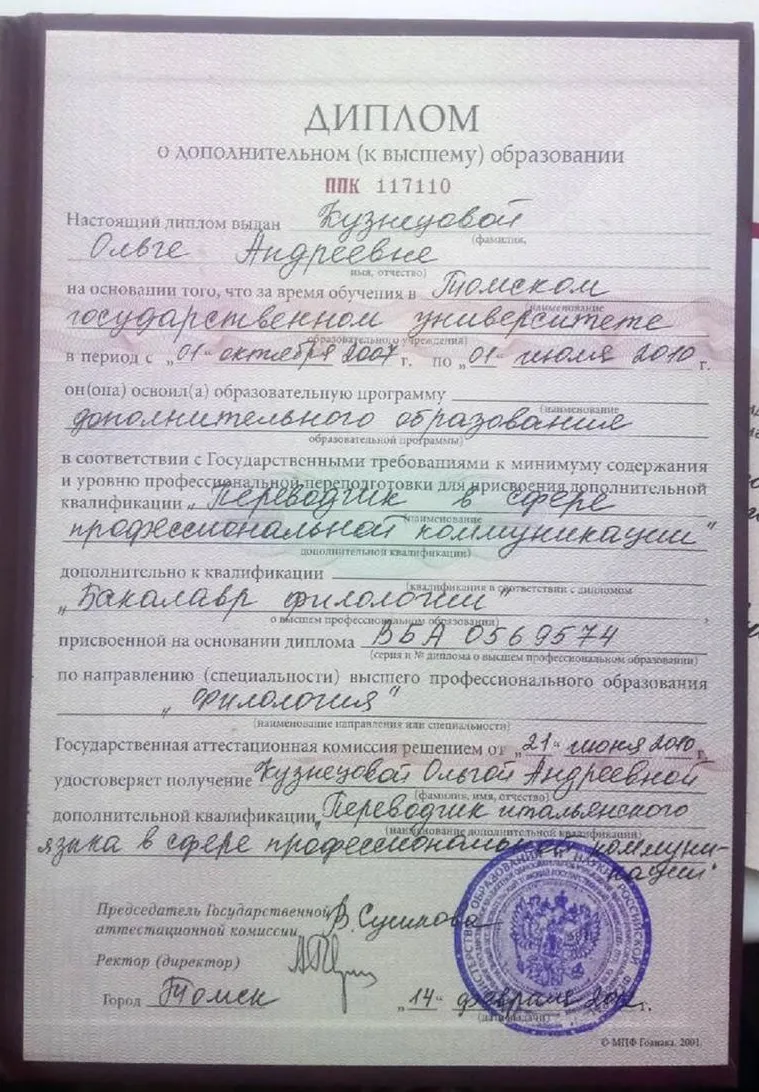 ДИПЛОМ
о дополнительном (к высшему) образовании
ППК 117110
Настоящий диплом выдан Кузнецовой
(фамилия,
Ольге Андреевне
имя, отчество)
на основании того, что за время обучения в Томском
(наименование
государственном университете
образовательного учреждения)
в период с „01“ октября 2007 г. по „01“ июля 2010 г.
он(она) освоил(а) образовательную программу
(наименование
дополнительного образования
образовательной программы)
в соответствии с Государственными требованиями к минимуму содержания
и уровню профессиональной переподготовки для присвоения дополнительной
квалификации „Переводчик в сфере
(наименование
профессиональной коммуникации“
дополнительной квалификации)
дополнительно к квалификации
(квалификация в соответствии с дипломом
„Бакалавр филологии“,
о высшем профессиональном образовании)
присвоенной на основании диплома ВБА 0569574
(серия и № диплома о высшем профессиональном образовании)
по направлению (специальности) высшего профессионального образования
„филология“
(наименование направления или специальности)
Государственная аттестационная комиссия решением от „21“ июня 2010 г.
удостоверяет получение Кузнецовой Ольгой Андреевной
(фамилия, имя, отчество)
дополнительной квалификации „Переводчик итальянского
(наименование дополнительной квалификации)
языка в сфере профессиональной коммуни-
кации“
Председатель Государственной
аттестационной комиссии
Ректор (директор)
Город Томск „14“ февраля г.
(дата выдачи)
© МПФ Гознака. 2001.